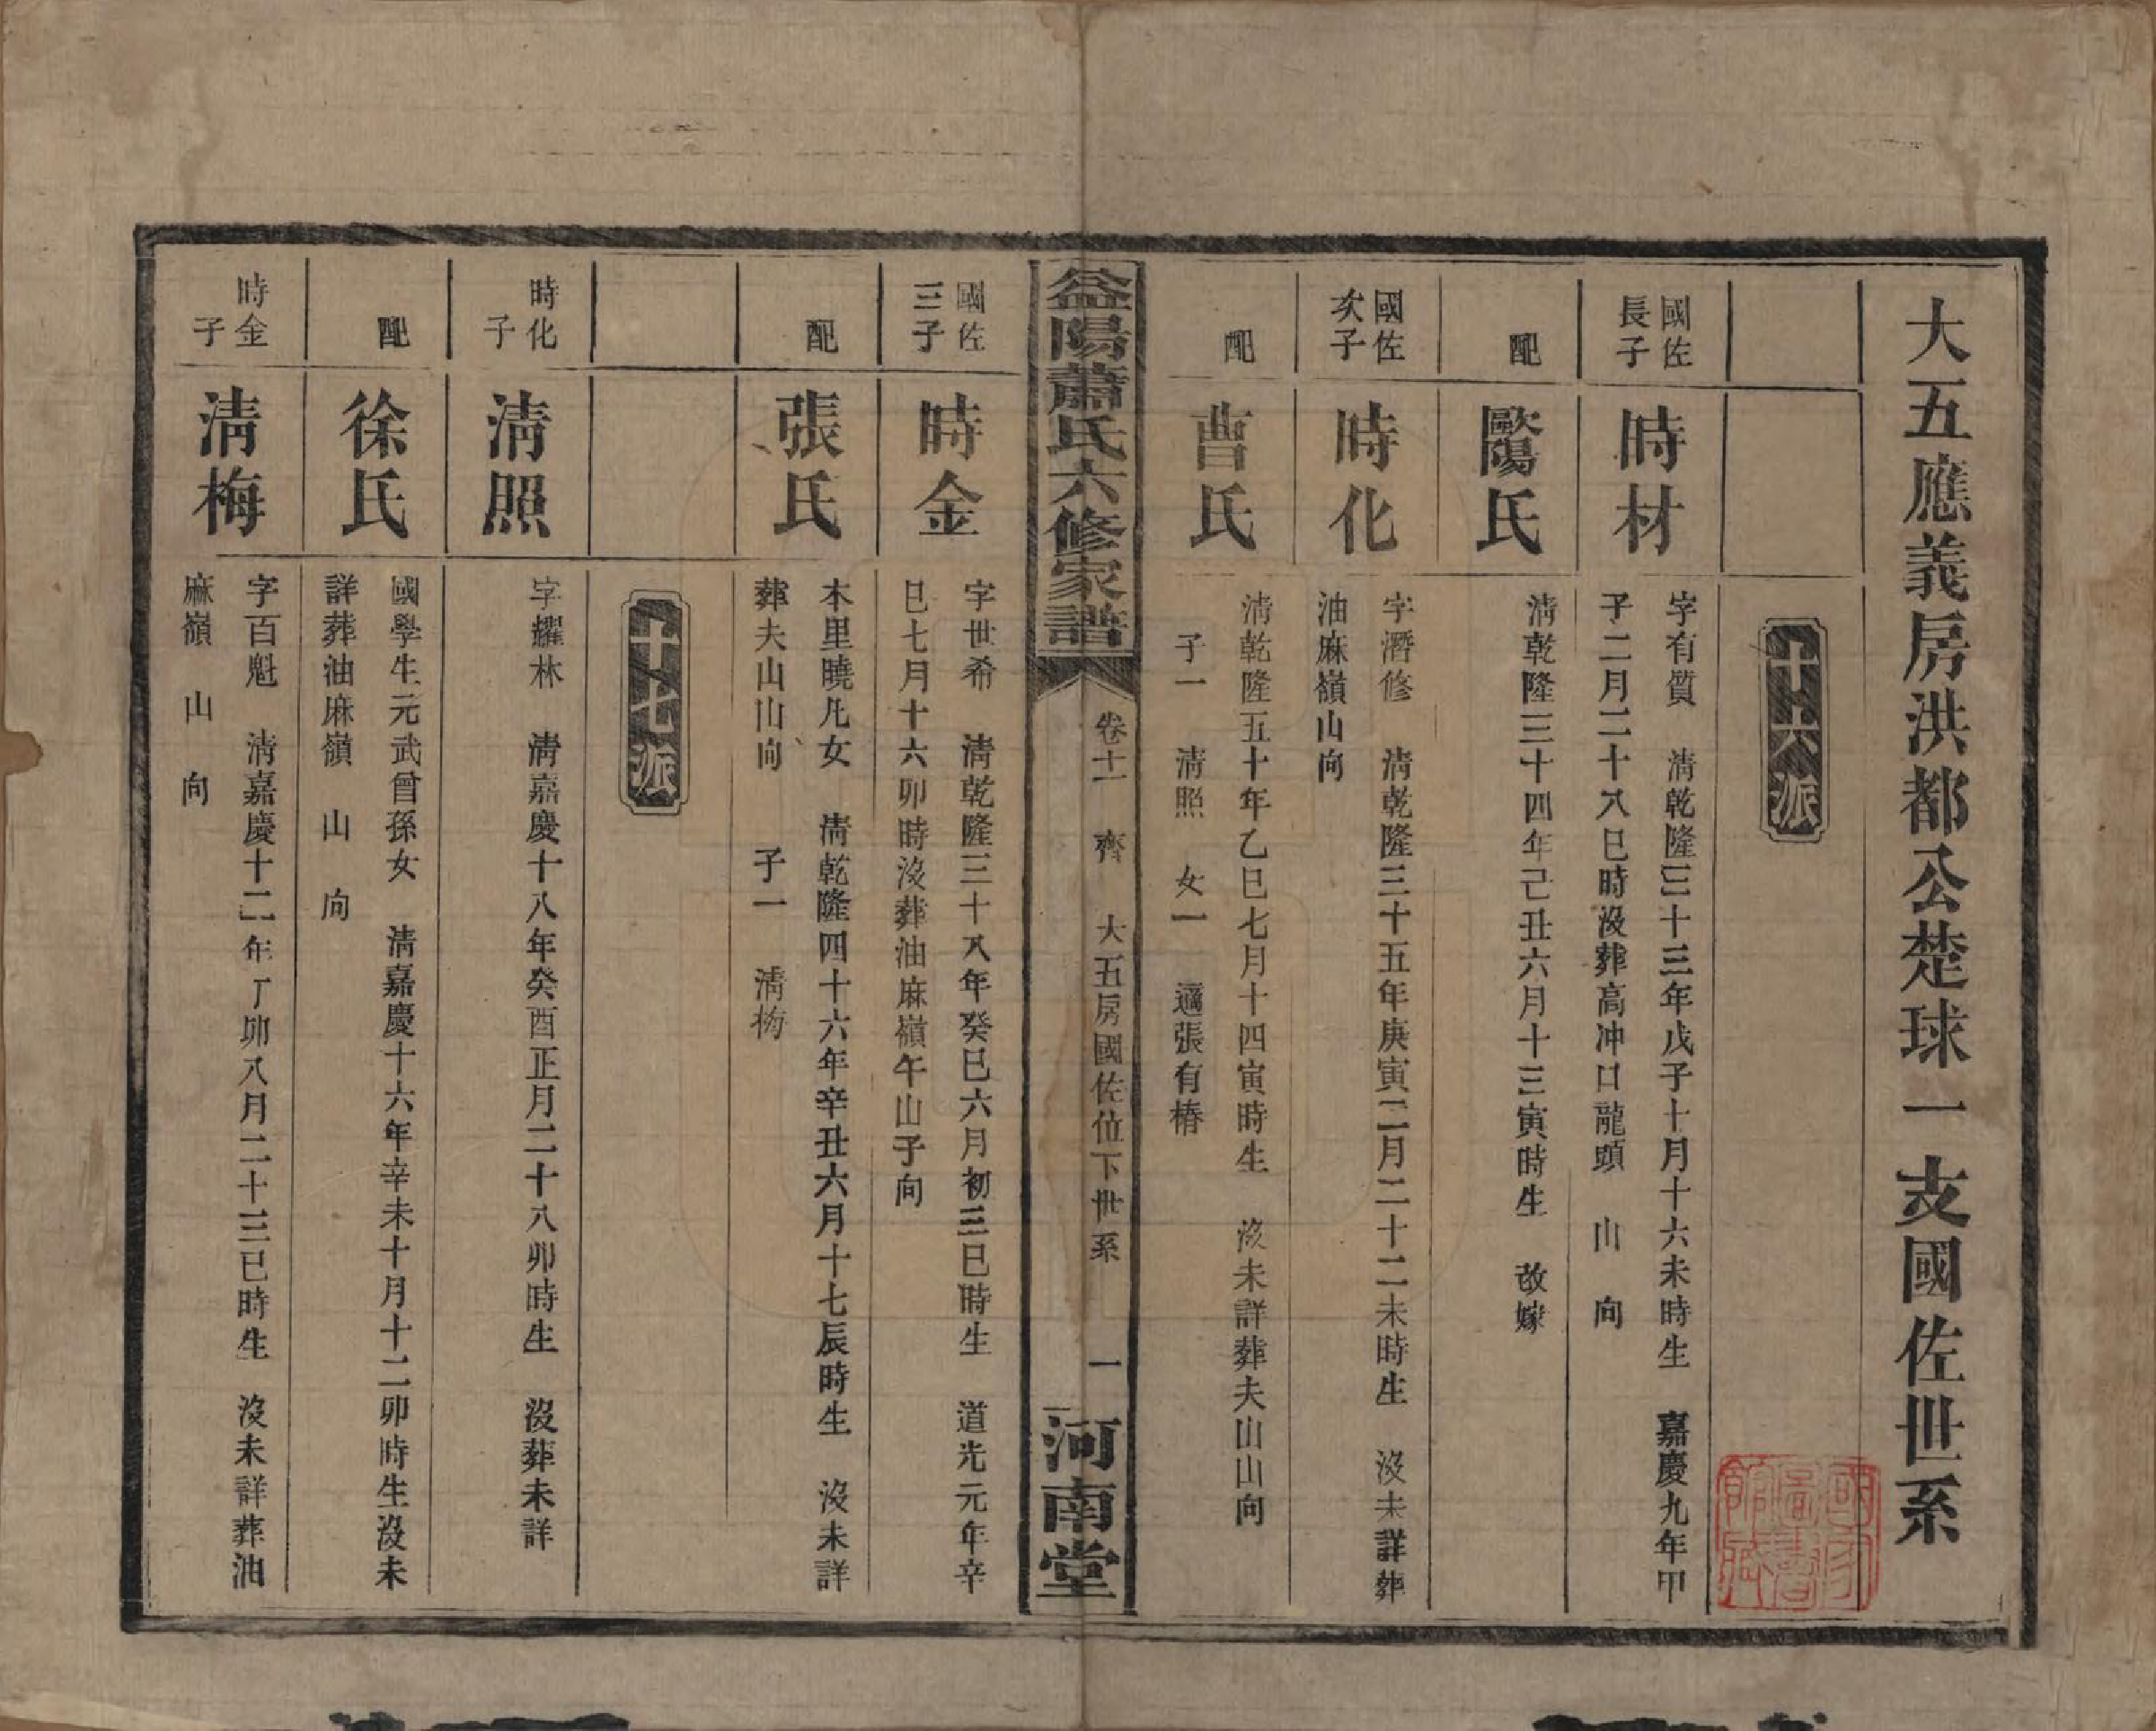 大五應義房洪都公楚球一支國佐世系
十六派
國佐
長子
時材
字有質 清乾隆三十三年戊子十月十六未時生 嘉慶九年甲
子二月二十八巳時沒葬高冲口龍頭 山 向
配
歐陽氏
清乾隆三十四年己丑六月十三寅時生 改嫁
國佐
次子
時化
字潛修 清乾隆三十五年庚寅二月二十二未時生 沒未詳葬
油麻嶺山向
配
曹氏
清乾隆五十年乙巳七月十四寅時生 沒未詳葬夫山山向
子一 清照 女一 適張有椿
益陽蕭氏六修家譜
卷十一 齊 大五房國佐位下世系 一
河南堂
國佐
三子
時金
字世希 清乾隆三十八年癸巳六月初三巳時生 道光元年辛
巳七月十六卯時沒葬油麻嶺午山子向
配
張氏
木里曉凡女 清乾隆四十六年辛丑六月十七辰時生 沒未詳
葬夫山山向 子一 清梅
十七派
時化
子
清照
字耀林 清嘉慶十八年癸酉正月二十八卯時生 沒葬未詳
配
徐氏
國學生元武曾孫女 清嘉慶十六年辛未十月十二卯時生沒未
詳葬油麻嶺 山 向
時金
子
清梅
字百魁 清嘉慶十二年丁卯八月二十三巳時生 沒未詳葬油
麻嶺 山 向